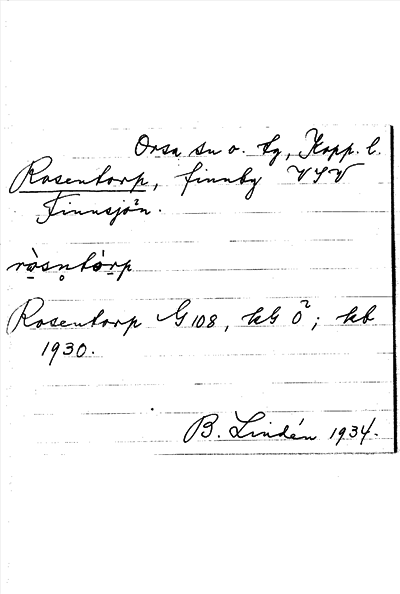 Orsa sn o. tg, Kopp. l.
Rosentorp, finnby VSV
Finnsjön.
ròsṇtòrp
Rosentorp G 108, kG Ö²; kb
1930.
B. Lindén 1934.